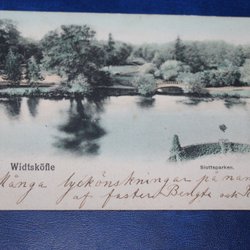 Widtsköfle
Slottsparken.
Många lyckönskningar på nam
af faster Bengta och